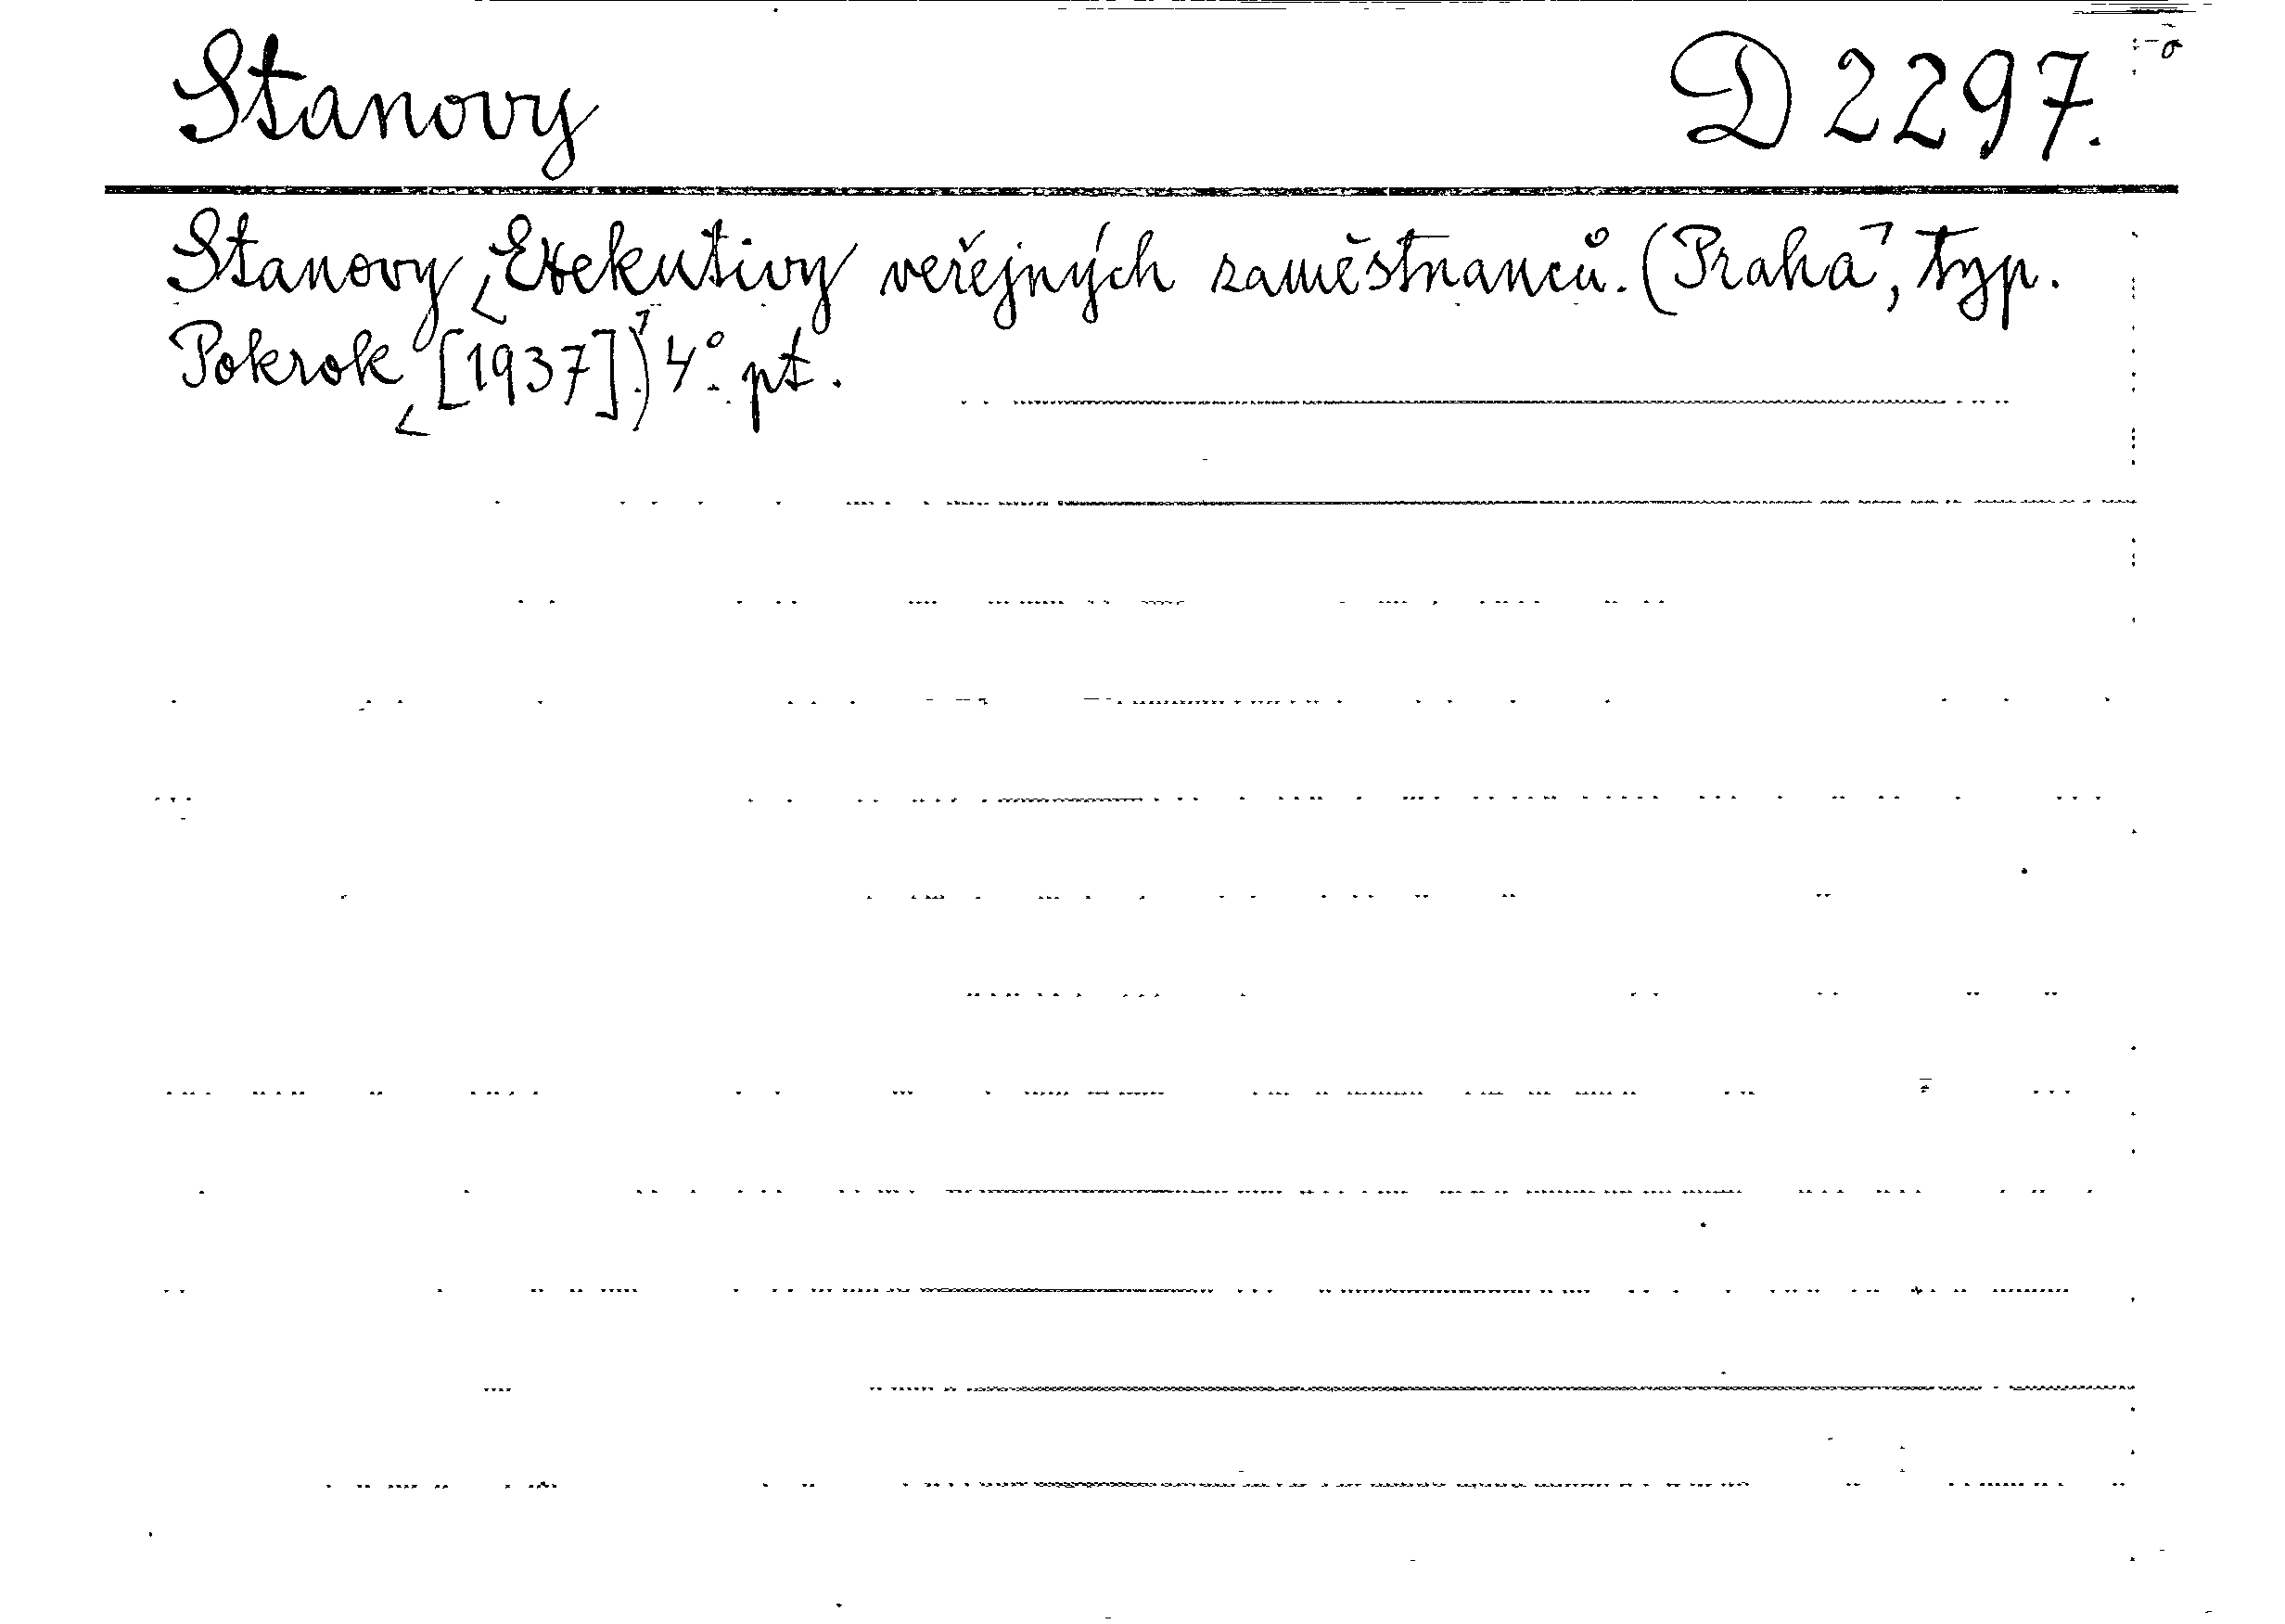 Stanovy D 2297.
Stanovy Exekutivy veřejných zaměstnanců. (Praha, typ.
Pokrok [1937].) 4°. pt.